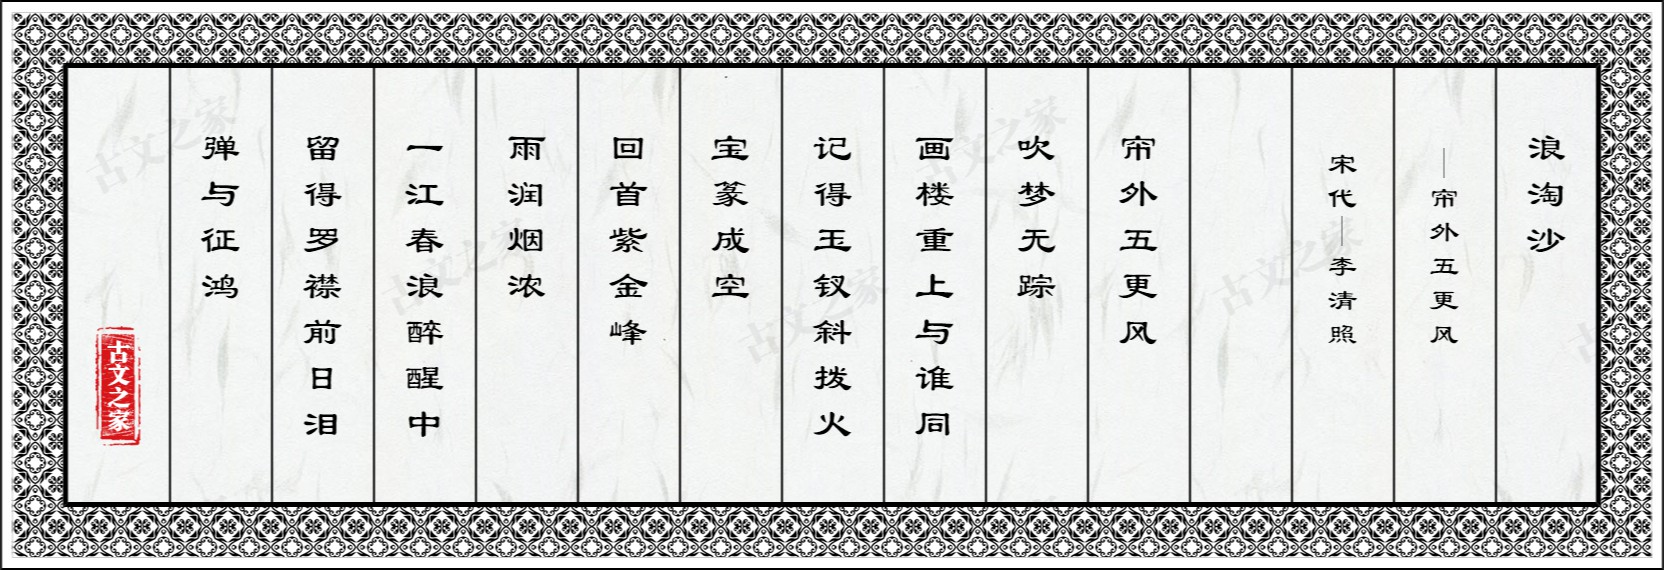 浪淘沙
—帘外五更风
宋代—李清照
帘外五更风
吹梦无踪
画楼重上与谁同
记得玉钗斜拨火
宝篆成空
回首紫金峰
雨润烟浓
一江春浪醉醒中
留得罗襟前日泪
弹与征鸿
古文之家